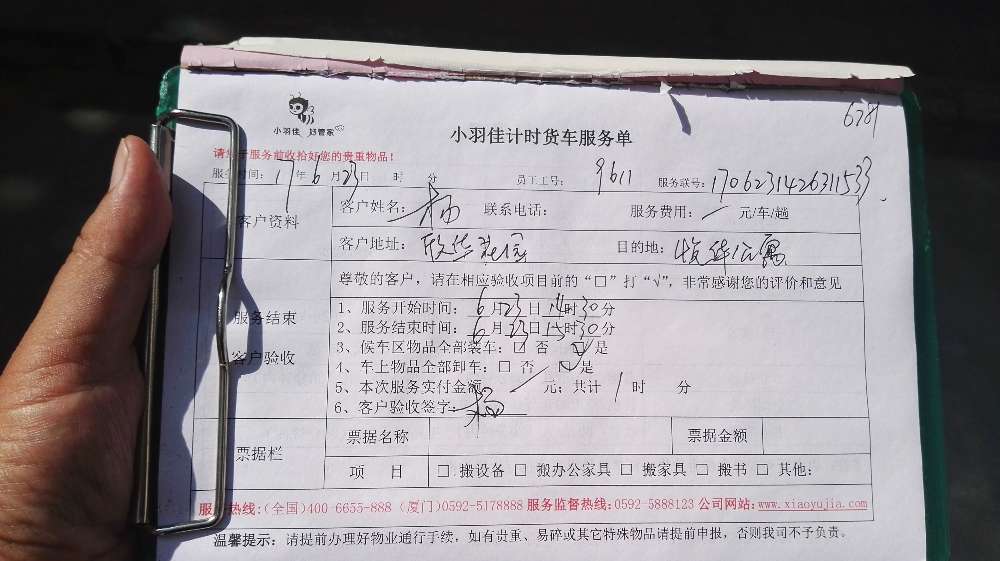 6781
小羽佳 好管家
小羽佳计时货车服务单
服务前收拾好您的贵重物品！
服务时间：17年6月23日 时 分 员工工号：9611 服务联号：1706231426311533
客户资料
客户姓名：杨 联系电话： 服务费用：／元/车/趟
客户地址：欣华花园 目的地：公寓
服务结束
客户验收
尊敬的客户，请在相应验收项目前的“□”打“√”，非常感谢您的评价和意见
1、服务开始时间：6月23日14时30分
2、服务结束时间：6月23日15时30分
3、候车区物品全部装车：□ 否 ☑是
4、车上物品全部卸车：□ 否 ☑是
5、本次服务实付金额：／元；共计 1 时 分
6、客户验收签字：杨
票据栏
票据名称 票据金额
项 目 □ 搬设备 □ 搬办公家具 □ 搬家具 □ 搬书 □ 其他：
服务热线：(全国)400-6655-888 (厦门)0592-5178888 服务监督热线：0592-5888123 公司网站：www.xiaoyujia.com
温馨提示：请提前办理好物业通行手续，如有贵重、易碎或其它特殊物品请提前申报，否则我司不予负责。